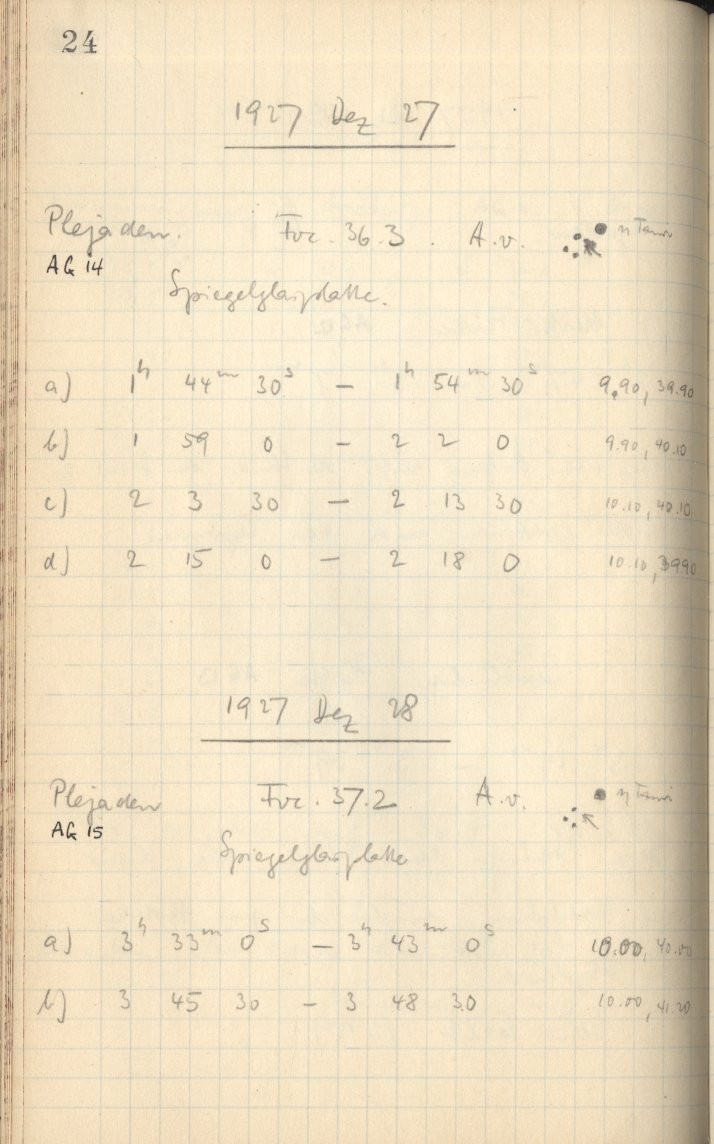 24
1927 Dez 27
Plejaden. Foc. 36.3. A.v. η Tauri
AG 14
Spiegelglasplatte.
a) 1h 44m 30s — 1h 54m 30s 9.90, 39.90
b) 1 59 0 — 2 2 0 9.90, 40.10
c) 2 3 30 — 2 13 30 10.10, 40.10
d) 2 15 0 — 2 18 0 10.10, 39.90
1927 Dez 28
Plejaden Foc. 37.2 A.v. η Tauri
AG 15
Spiegelglasplatte
a) 3h 33m 0s — 3h 43m 0s 10.00, 40.00
b) 3 45 30 — 3 48 30 10.00, 41.20